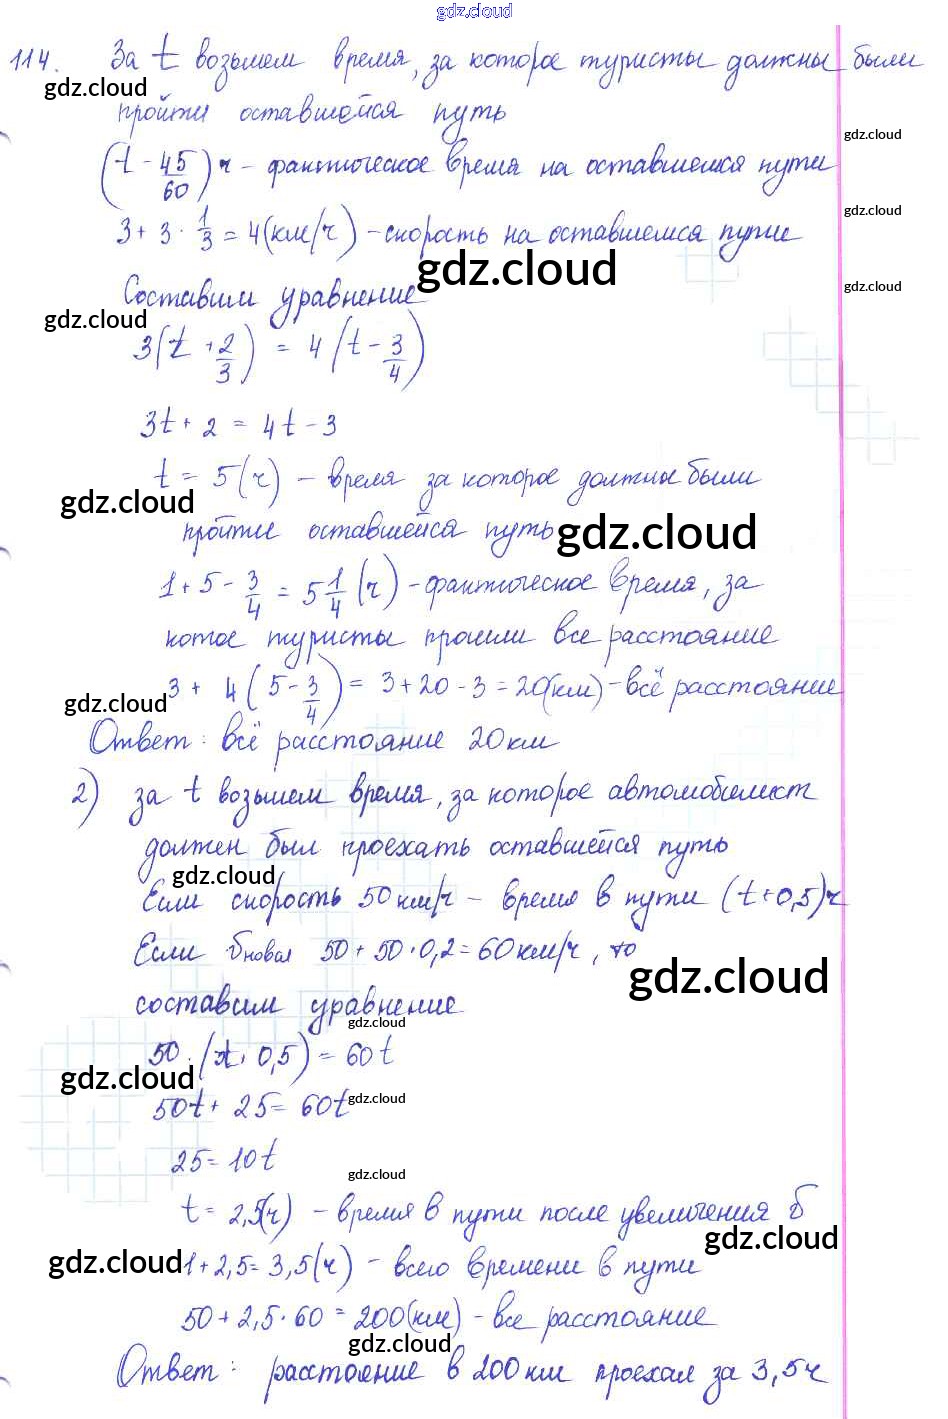 gdz.cloud
114. За t возьмем время, за которое туристы должны были
gdz.cloud
пройти оставшейся путь
gdz.cloud
(t - 45/60) ч - фактическое время на оставшемся пути
gdz.cloud
3 + 3 · 1/3 = 4 (км/ч) - скорость на оставшемся пути
gdz.cloud
gdz.cloud
Составим уравнение
gdz.cloud
3(t + 2/3) = 4(t - 3/4)
3t + 2 = 4t - 3
t = 5 (ч) - время за которое должны были
gdz.cloud
пройти оставшейся путь
gdz.cloud
1 + 5 - 3/4 = 5 1/4 (ч) - фактическое время, за
котое туристы прошли все расстояние
3 + 4(5 - 3/4) = 3 + 20 - 3 = 20(км) - всё расстояние
gdz.cloud
Ответ: всё расстояние 20 км
2) за t возьмем время, за которое автомобилист
должен был проехать оставшейся путь
gdz.cloud
Если скорость 50 км/ч - время в пути (t+0,5)ч
Если 50 + 50 · 0,2 = 60 км/ч, то
gdz.cloud
составим уравнение
gdz.cloud
50 · (t + 0,5) = 60t
gdz.cloud
50t + 25 = 60t
gdz.cloud
25 = 10t
gdz.cloud
t = 2,5(ч) - время в пути после увеличения
gdz.cloud
gdz.cloud
1 + 2,5 = 3,5 (ч) - всего времени в пути
50 + 2,5 · 60 = 200(км) - все расстояние
gdz.cloud
Ответ: расстояние в 200 км проехал за 3,5ч